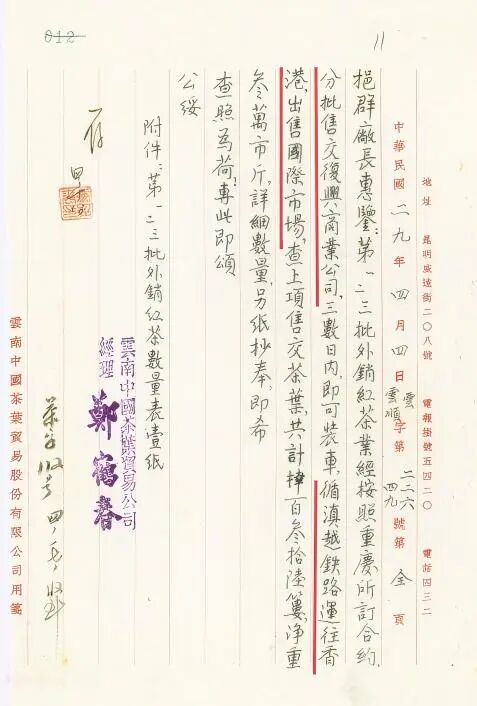 012
11
地址 昆明威遠街二〇八號 電報掛號五四二〇 電話四三二
中華民國二九年四月四日 雲雲順字第二二六四九號第全頁
挹群廠長惠鑒：第一二三批外銷紅茶業經按照重慶所訂合約，
分批售交復興商業公司，三數日內，即可裝車，循滇越鉄路運往香
港，出售國際市場，查上項售交茶葉，共計肆百叁拾陸簍，净重
叁萬市斤，詳細數量，另紙抄奉，即希
查照為荷；專此即頌
公綏
附件：第一二三批外銷紅茶數量表壹紙
雲南中國茶葉貿易公司
經理 鄭鶴春
存
雲南中國茶葉貿易股份有限公司用箋